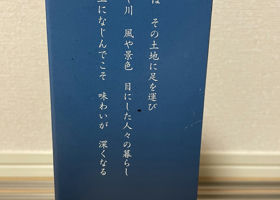 は　その土地に足を運び
川　風や景色　目にした人々の暮らし
になじんでこそ　味わいが　深くなる